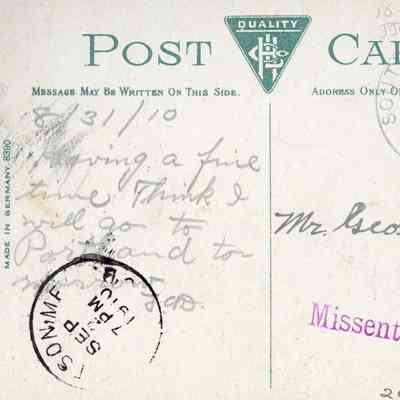 POST CA
QUALITY
MESSAGE MAY BE WRITTEN ON THIS SIDE.
ADDRESS ONLY O
8/31/10
Having a fine
time Think I
will go to
Portland to
morrow
MADE IN GERMANY 8390
Mr. Geo
Missent
SEP
7 PM
1910
SON.ME